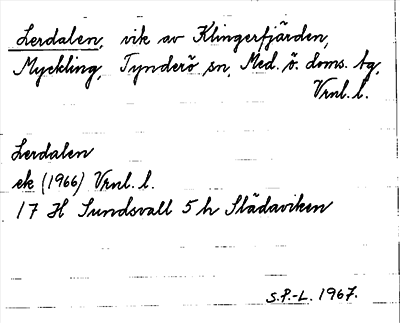 Lerdalen, vik av Klingerfjärden,
Myckling, Tynderö sn, Med. ö. doms. tg,
Vrnl. l.
Lerdalen
ek (1966) Vrnl. l.
17 H Sundsvall 5 h Slädaviken
S.P.-L. 1967.